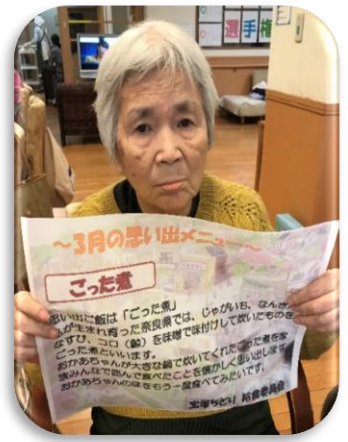 選手権
～3月の思い出メニュー～
ごった煮
思い出ご飯は「ごった煮」
が生まれ育った奈良県では、じゃがいも、なんきん
なすび、コロ（鯨）を味噌で味付けして炊いたものを
ごった煮といいます。
おかあちゃんが大きな鍋で炊いてくれたごった煮を家
族みんなで囲んで食べたことを懐かしく思い出します。
おかあちゃんの味をもう一度食べてみたいです。
宝塚ちどり 給食委員会